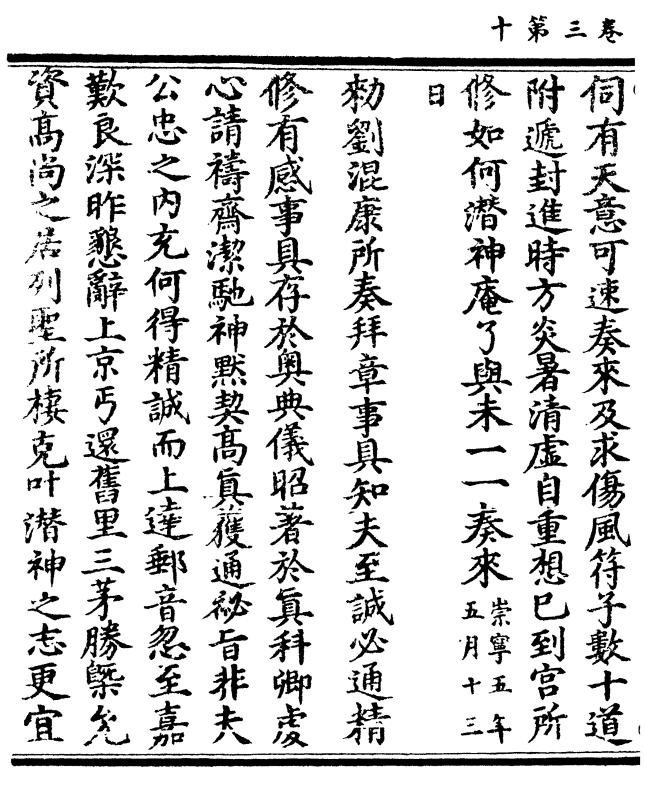 卷三第十
伺有天意可速奏來及求傷風符子數十道
附遞封進時方炎暑清虛自重想已到宮所
修如何潛神庵了與未一一奏來崇寧五年五月十三
日
敕劉混康所奏拜章事具知夫至誠必通精
修有感事具存於奥典儀昭著於眞科卿虔
心請禱齋潔馳神黙契高眞獲通祕旨非夫
公忠之内充何得精誠而上達郵音忽至嘉
歎良深昨懇辭上京丐還舊里三茅勝槩允
資高尚之居列聖所棲克叶潛神之志更宜